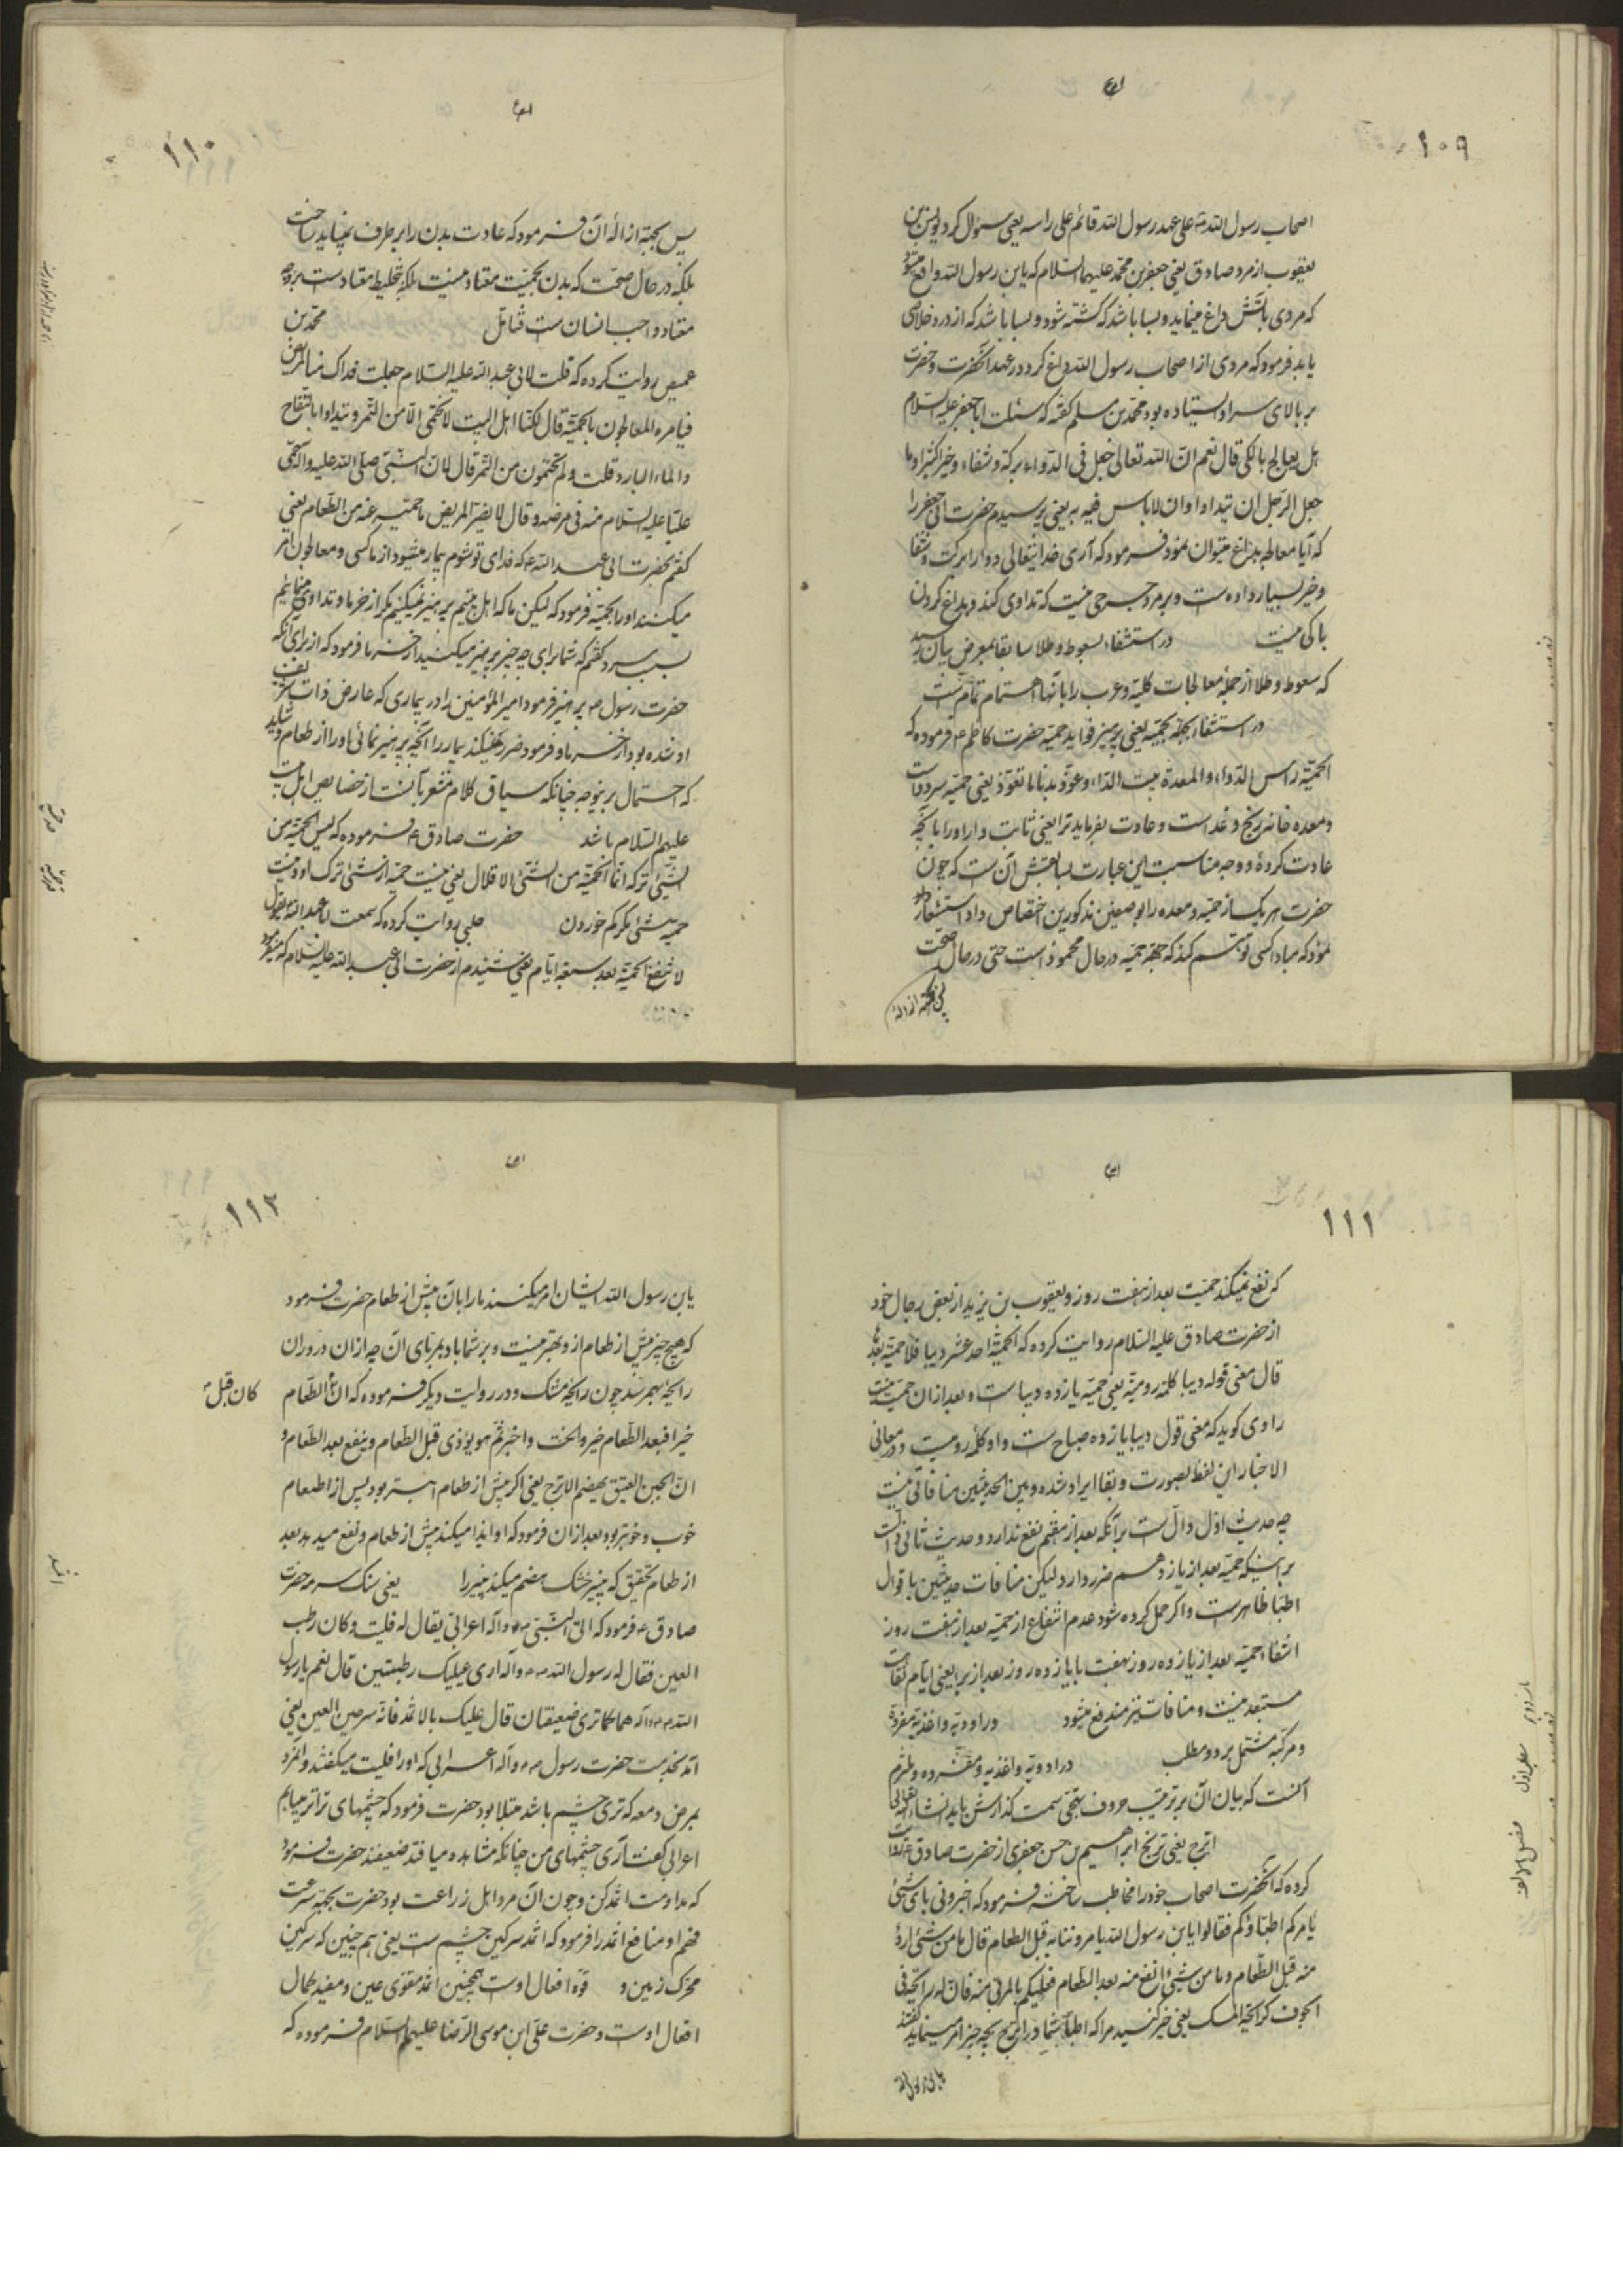 ۱۰۹
اصحاب رسول الله ص علی عهد رسول الله قائم علی راسه یعنی سؤال کرد یونس بن
یعقوب از مرد صادق یعنی جعفر بن محمد علیهما السلام که یا بن رسول الله واقع میشود
که مردی بآتش داغ مینماید و بسا باشد که کشته شود و بسا باشد که از درد خلاصی
یابد فرمود که مردی از اصحاب رسول الله داغ کرد در عهد آنحضرت و حضرت
بر بالای سر او ایستاده بود محمد بن مسلم گفته که سئلت ابا جعفر علیه السلام
هل یعالج بالکی قال نعم ان الله تعالی جعل فی الدواء برکة و شفاء و خیرا کثیرا و ما
جعل الرجل ان یتداوا و ان لا باس فیه به یعنی پرسیدم حضرت ابی جعفر را
که آیا معالجه بداغ میتوان نمود فرمود که آری خدایتعالی دوا را برکت و شفا
و خیر بسیار داده است و بر مرد حرجی نیست که تداوی کند و بداغ کردن
باکی نیست در استشفاء بسعوط و طلا سابقا بمعرض بیان رسید
که سعوط و طلا از جمله معالجات کلیه و عرب را بآنها اهتمام تمام است
در استشفاء بجهة بحمیه یعنی پرهیز فواید حمیه حضرت کاظم ع فرموده که
الحمیة راس الدواء و المعدة بیت الداء و عود بدنا ما تعود یعنی حمیه سر دواست
و معده خانه رنج و غد است و عادت بفرماید ترا یعنی ثابت دار او را بآنچه
عادت کرده و وجه مناسبت این عبارت بسابقش آن ست که چون
حضرت هر یک از حمیه و معده را بوصفین مذکورین اختصاص داد استشعار
نمود که مبادا کسی توهم کند که جهة حمیه در حال محمود است حتی در حال صحت
پس بجهته ازاله
۱۱۰
پس بجهته ازاله آن فرمود که عادت بدن را بر طرف نمیباید ساخت
بلکه در حال صحت که بدن بحمیت معتاد نیست بلکه بتخلیط معتادست بر وجه
معتاد واجب انسان ست فتامل محمد بن
عمیص روایت کرده که قلت لابی عبد الله علیه السلام جعلت فداک منا المریض
فیامره المعالجون بالحمیة قال لکنا اهل البیت لا نحتمی الا من التمر و نتداوا بالتفاح
و الماء البارد قلت و لم تحتمون من التمر قال لان النبی صلی الله علیه و آله حمی
علیا علیه السلام منه فی مرضه و قال لا یضر المریض ما حمیته عنه من الطعام یعنی
گفتم بحضرت ابی عبد الله ع که فدای تو شوم بیمار میشود از ما کسی و معالجون امر
میکنند او را بحمیه فرمود که لیکن ما که اهل بیتیم پرهیز نمیکنیم مگر از خرما و تداوی مینمائیم
بسیب سرد گفتم که شما برای چه چیز پرهیز میکنید از خرما فرمود که از برای آنکه
حضرت رسول ص پرهیز فرمود امیر المؤمنین را در بیماری که عارض ذات شریف
او شده بود از خرما و فرمود ضرر نمیکند بیمار را آنچه پرهیز نمائی او را از طعام و شاید
که احتمال بر نوجه چنانکه سیاق کلام مشعر بآنست از خصایص اهل بیت
علیهم السلام باشد حضرت صادق ع فرموده که لیس الحمیة من
الشئ ترکه انما الحمیة من الشئ الاقلال یعنی نیست حمیه از شئ ترک او و نیست
حمیه شئ مگر کم خوردن حلبی روایت کرده که سمعت ابا عبد الله ع یقول
لا تنفع الحمیة بعد سبعة ایام یعنی شنیدم از حضرت ابی عبد الله علیه السلام که میفرمود
۱۱۱
که نفع نمیکند حمیت بعد از هفت روز و یعقوب بن یزید از بعض رجال خود
از حضرت صادق علیه السلام روایت کرده که الحمیة احد عشر دیبا فلا حمیة بعد
قال معنی قوله دیبا کلمة رومیة یعنی حمیه یازده دیباست و بعد از ان حمیت نیست
راوی گوید که معنی قول دیبا یازده صباح ست و او کلمه رومیست و در معانی
الاخبار این لفظ بصورت و بقا ایراد شده و بین الحدیثین منافاتی نیست
چه حدیث اول دال ست بر آنکه بعد از هفتم نفع ندارد و حدیث ثانی دال ست
بر اینکه حمیه بعد از یازدهم ضرر دارد لیکن منافات حدیثین با قوال
اطبا ظاهرست و اگر حمل کرده شود عدم انتفاع از حمیه بعد از هفت روز
انتفاء حمیه بعد از یازده روز بهفت یا یازده روز بعد از برء یعنی ایام نقاهت
مستبعد نیست و منافات نیز مندفع میشود در ادویه و اغذیه مفرده
و مرکبه مشتمل بر دو مطلب در ادویه و اغذیه مفرده و ملتزم
آنست که بیان آن بر ترتیب حروف تهجی سمت گذارش یابد انشاء الله تعالی
اترج یعنی ترنج ابراهیم بن حسن جعفری از حضرت صادق ع روایت
کرده که آنحضرت اصحاب خود را مخاطب ساخته فرمود که اخبرونی بای شئ
یامرکم اطباؤکم فقالوا یا بن رسول الله یامروننا به قبل الطعام قال ما من شئ اردء
منه قبل الطعام و ما من شئ انفع منه بعد الطعام فعلیکم بالمربی منه فان له رایحة فی
الجوف کرایحة المسک یعنی خبر کنید مرا که اطباء شما در اترج بچه چیز امر مینمایند گفتند
یا بن رسول الله
باب دوم
مطلب اول
فصل الالف
۱۱۲
یا بن رسول الله ایشان امر میکنند ما را بآن پیش از طعام حضرت فرمود
که هیچ چیز پیش از طعام از و بهتر نیست و بر شما باد بمربای آن چه از ان در وران
رایحه بهم رسد چون رایحه مشک و در روایت دیگر فرموده که ان الطعام کان قبل
خیرا فبعد الطعام خیر و اخت و اخبر ثم هو یؤذی قبل الطعام و ینفع بعد الطعام و
ان الجبن العتیق یهضم الاترج یعنی اگر پیش از طعام بهتر بود پس از اطعام
خوب و خوبتر بود بعد از ان فرمود که او ایذا میکند پیش از طعام و نفع میدهد بعد
از طعام بتحقیق که پنیر خشک هضم میکند پنیر را یعنی سنک سرمه حضرت
صادق ع فرمود که اتی النبی ص و آله اعرابی یقال له فلیت و کان رطب
العین فقال له رسول الله ص و آله اری عینیک رطبتین قال نعم یا رسول
الله ص و آله هما کما تری ضعیفتان قال علیک بالاثمد فانه سرجین العین یعنی
آمد بخدمت حضرت رسول ص و آله اعرابی که او را فلیت میگفتند و آنمرد
بمرض دمعه که تری چشم باشد مبتلا بود حضرت فرمود که چشمهای ترا تر میبابم
اعرابی گفت آری چشمهای من چنانکه مشاهده میافتد ضعیفند حضرت فرمود
که مداومت اثمد کن و چون آن مرد اهل زراعت بود حضرت بجهته سرعت
فهم او منافع اثمد را فرمود که اثمد سرکین چشم ست یعنی هم چنین که سرکین
محرک زمین و قوه افعال اوست همچنین اثمد مقوی عین و مفید کمال
افعال اوست و حضرت علی ابن موسی الرضا علیهما السلام فرموده که
اثمد